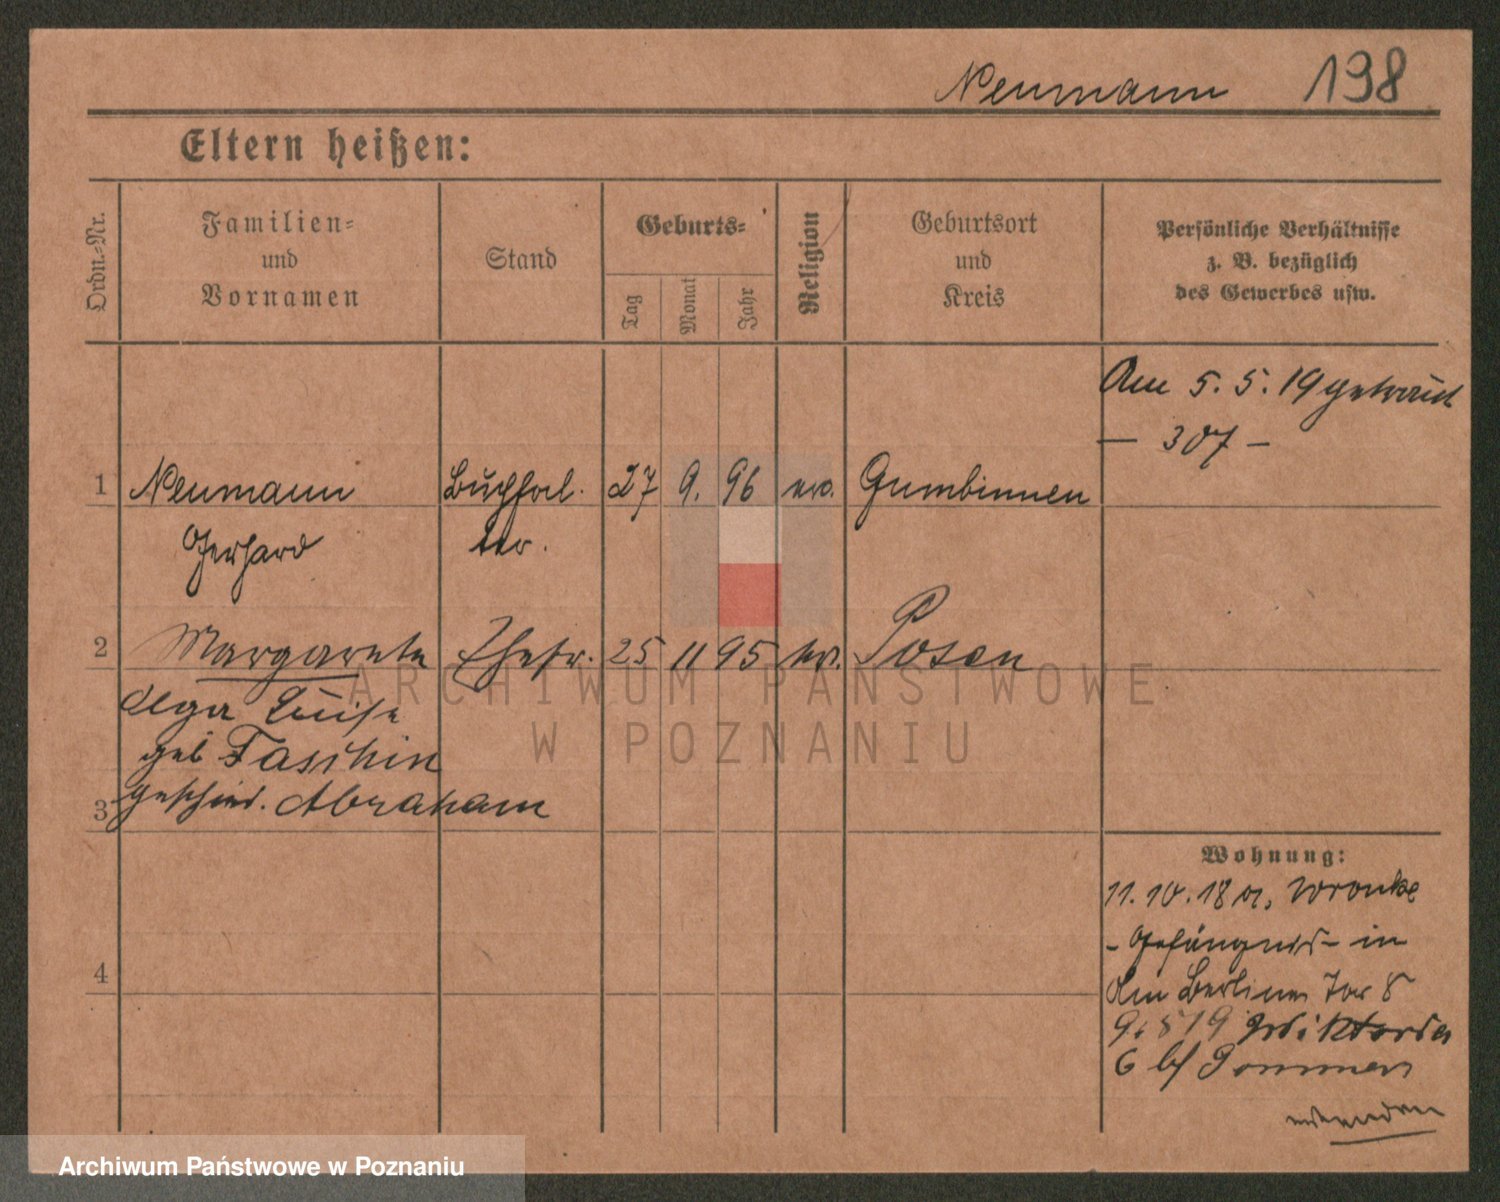 Neumann 198
Eltern heißen:
Ordn.-Nr.
Familien-
und
Vornamen
Stand
Geburts-
Tag
Monat
Jahr
Religion
Geburtsort
und
Kreis
Persönliche Verhältnisse
z. B. bezüglich
des Gewerbes usw.
Am 5. 5. 19 getraut
— 307 —
1 Neumann Buchhal- 27 9. 96 ev. Gumbinnen
Gerhard ter.
2 Margarete Ehefr. 25 11 95 ev. Posen
Olga Luise
geb Taschin
3 geschied. Abraham
Wohnung:
11. 10. 18 a. Wronke
- Gefängnis - in
Am Berliner Tor 8
9. 5 19 Viktoria
6 b/ Pommer
wenden
4
ARCHIWUM PAŃSTWOWE
W POZNANIU
Archiwum Państwowe w Poznaniu